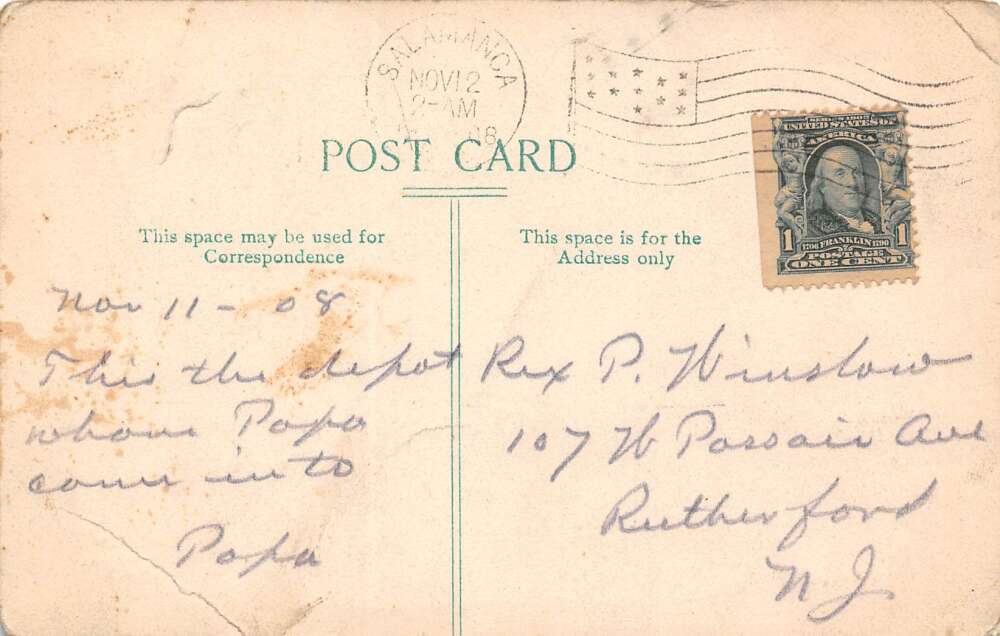 SALAMANCA
NOV 12
2-AM
08
POST CARD
This space may be used for
Correspondence
This space is for the
Address only
SERIES 1902
UNITED STATES OF
AMERICA
1 1706 FRANKLIN 1790 1
POSTAGE
ONE CENT
Nov 11 - 08
This the depot
whare Papa
come in to
Papa
Rex P. Winslow
107 W Passaic Ave
Rutherford
N J.